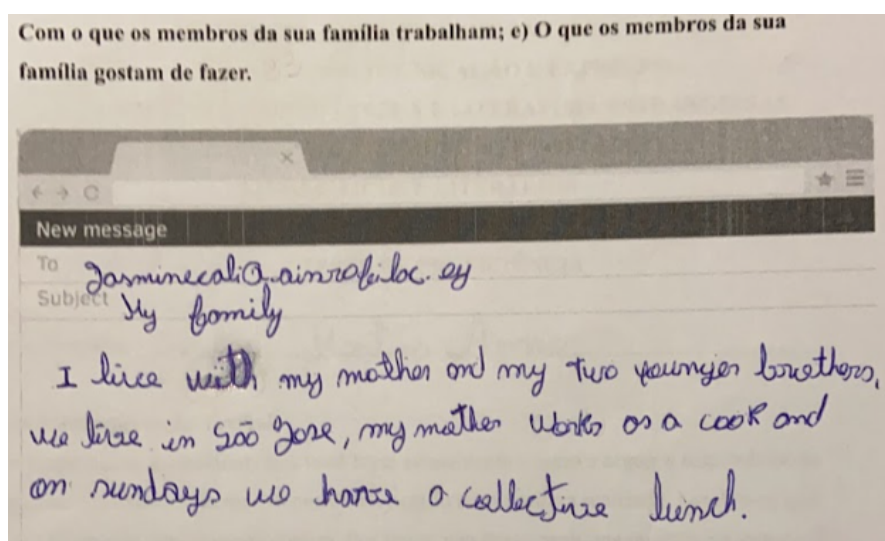 Com o que os membros da sua família trabalham; e) O que os membros da sua
família gostam de fazer.
New message
To jasminecali@ainrofiloc.ey
Subject My family
I live with my mother and my two younger brothers,
we live in São Jose, my mother works as a cook and
on sundays we have a collective lunch.